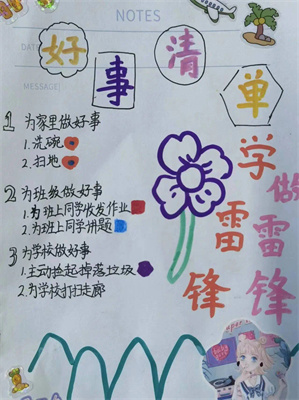 NOTES
DATE
MESSAGE:
好事清单
1 为家里做好事
1.洗碗
2.扫地
2 为班级做好事
1.为班上同学收发作业
2.为班上同学讲题
3 为学校做好事
1.主动捡起掉落垃圾
2.为学校打扫走廊
学雷锋
做雷锋